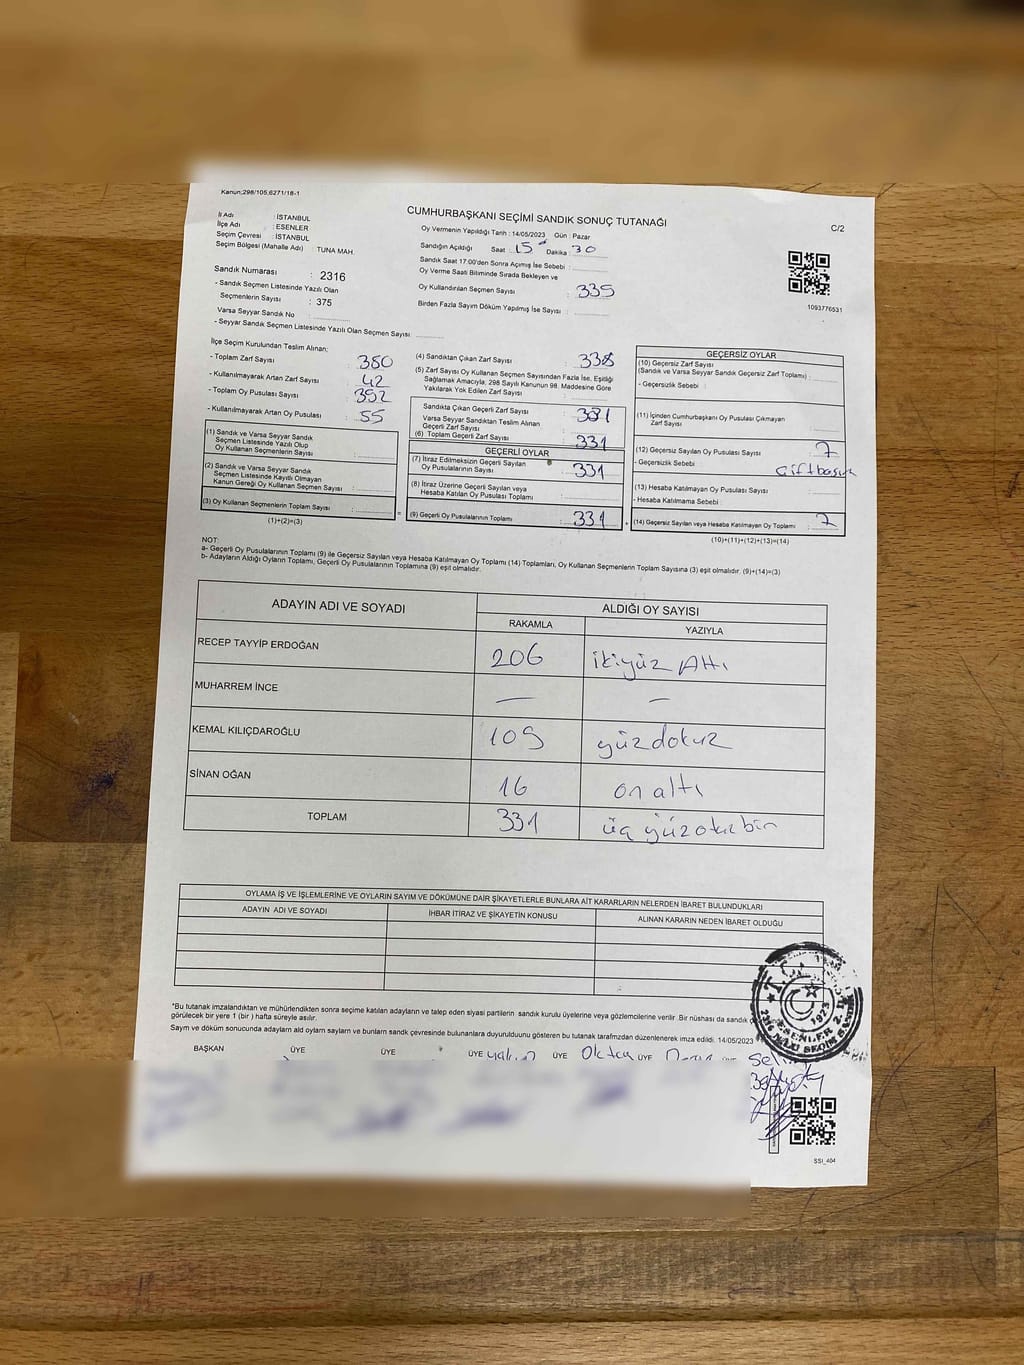 Kanun;298/105,6271/18-1
CUMHURBAŞKANI SEÇİMİ SANDIK SONUÇ TUTANAĞI
C/2
İl Adı : İSTANBUL
İlçe Adı : ESENLER
Seçim Çevresi : İSTANBUL
Seçim Bölgesi (Mahalle Adı) TUNA MAH.
Sandık Numarası : 2316
- Sandık Seçmen Listesinde Yazılı Olan
Seçmenlerin Sayısı : 375
Varsa Seyyar Sandık No
- Seyyar Sandık Listesinde Yazılı Olan Seçmen Sayısı
Oy Vermenin Yapıldığı Tarih : 14/05/2023 Gün : Pazar
Sandığın Açıldığı Saat : 15 Dakika : 30
Sandık Saat 17:00'den Sonra Açımış İse Sebebi :
Oy Verme Saati Bitiminde Sırada Bekleyen ve
Oy Kullandırılan Seçmen Sayısı : 335
Birden Fazla Sayım Döküm Yapılmış İse Sayısı :
1093776531
İlçe Seçim Kurulundan Teslim Alınan;
- Toplam Zarf Sayısı : 380
- Kullanılmayarak Artan Zarf Sayısı : 42
- Toplam Oy Pusulası Sayısı : 392
- Kullanılmayarak Artan Oy Pusulası : 55
(1) Sandık ve Varsa Seyyar Sandık
Seçmen Listesinde Yazılı Olup
Oy Kullanan Seçmenlerin Sayısı :
(2) Sandık ve Varsa Seyyar Sandık
Seçmen Listesinde Kayıtlı Olmayan
Kanun Gereği Oy Kullanan Seçmen Sayısı :
(3) Oy Kullanan Seçmenlerin Toplam Sayısı :
(1)+(2)=(3)
(4) Sandıktan Çıkan Zarf Sayısı : 338
(5) Zarf Sayısı Oy Kullanan Seçmen Sayısından Fazla İse, Eşitliği
Sağlamak Amacıyla; 298 Sayılı Kanunun 98. Maddesine Göre
Yakılarak Yok Edilen Zarf Sayısı :
Sandıkta Çıkan Geçerli Zarf Sayısı : 331
Varsa Seyyar Sandıktan Teslim Alınan
Geçerli Zarf Sayısı :
(6) Toplam Geçerli Zarf Sayısı : 331
GEÇERLİ OYLAR
(7) İtiraz Edilmeksizin Geçerli Sayılan
Oy Pusulalarının Sayısı : 331
(8) İtiraz Üzerine Geçerli Sayılan veya
Hesaba Katılan Oy Pusulası Toplamı :
(9) Geçerli Oy Pusulalarının Toplamı : 331
GEÇERSİZ OYLAR
(10) Geçersiz Zarf Sayısı
(Sandık ve Varsa Seyyar Sandık Geçersiz Zarf Toplamı) :
- Geçersizlik Sebebi :
(11) İçinden Cumhurbaşkanı Oy Pusulası Çıkmayan
Zarf Sayısı :
(12) Geçersiz Sayılan Oy Pusulası Sayısı : 7
- Geçersizlik Sebebi :
(13) Hesaba Katılmayan Oy Pusulası Sayısı :
- Hesaba Katılmama Sebebi :
(14) Geçersiz Sayılan veya Hesaba Katılmayan Oy Toplamı : 7
(10)+(11)+(12)+(13)=(14)
NOT:
a- Geçerli Oy Pusulalarının Toplamı (9) ile Geçersiz Sayılan veya Hesaba Katılmayan Oy Toplamı (14) Toplamları, Oy Kullanan Seçmenlerin Toplam Sayısına (3) eşit olmalıdır. (9)+(14)=(3)
b- Adayların Aldığı Oyların Toplamı, Geçerli Oy Pusulalarının Toplamına (9) eşit olmalıdır.
ADAYIN ADI VE SOYADI ALDIĞI OY SAYISI
RAKAMLA YAZIYLA
RECEP TAYYİP ERDOĞAN 206 ikiyüz Altı
MUHARREM İNCE — —
KEMAL KILIÇDAROĞLU 109 yüzdokuz
SİNAN OĞAN 16 on altı
TOPLAM 331 üç yüz otuz bir
OYLAMA İŞ VE İŞLEMLERİNE VE OYLARIN SAYIM VE DÖKÜMÜNE DAİR ŞİKAYETLERLE BUNLARA AİT KARARLARIN NELERDEN İBARET BULUNDUKLARI
ADAYIN ADI VE SOYADI İHBAR İTİRAZ VE ŞİKAYETİN KONUSU ALINAN KARARIN NEDEN İBARET OLDUĞU
*Bu tutanak imzalandıktan ve mühürlendikten sonra seçime katılan adayların ve talep eden siyasi partilerin sandık kurulu üyelerine veya gözlemcilerine verilir .Bir nüshası da sandık
görülecek bir yere 1 (bir ) hafta süreyle asılır.
Sayım ve döküm sonucunda adayların ald oyların sayların ve bunların sandık çevresinde bulunanlara duyurulduunu gösteren bu tutanak tarafımızdan düzenlenerek imza edildi. 14/05/2023
BAŞKAN ÜYE ÜYE ÜYE ÜYE Oktay ÜYE
T.C.
1923
ESENLER 2.
SSI_404